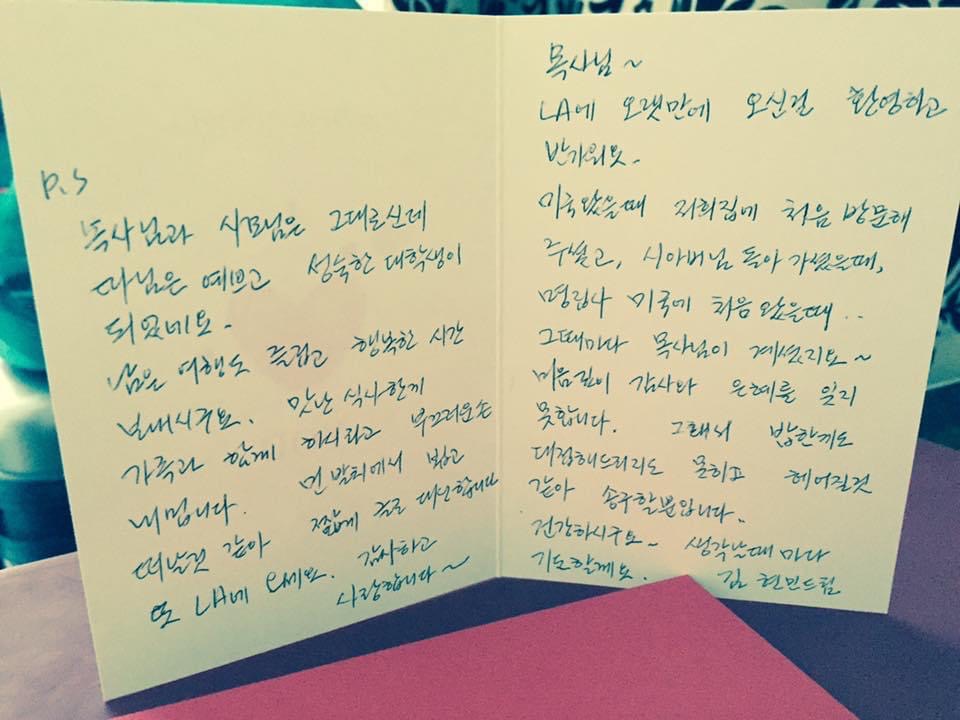 목사님 ~
LA에 오랫만에 오신걸 환영하고
반가워요.
미국왔을때 저희집에 처음 방문해
주셨고, 시아버님 돌아가셨을때,
미국에 처음 왔을때..
그때마다 목사님이 계셨지요~
마음깊이 감사와 은혜를 잊지
못합니다. 그래서 밥한끼도
대접해드리지도 못하고 헤어질것
같아 송구할뿐입니다.
건강하시구요~ 생각날때마다
기도할께요. 김현민드림
P.S
목사님과 사모님은 그대로신데
따님은 예쁘고 성숙한 대학생이
되었네요.
남은 여행도 즐겁고 행복한 시간
보내시구요. 맛난 식사한끼
가족과 함께 하시라고 부끄러운손
내밉니다. 먼 발치에서 뵙고
떠날것 같아 짧게 글로 대신합니다
또 LA에 오세요. 감사하고
사랑합니다~